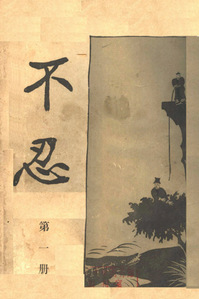 不忍
第一册